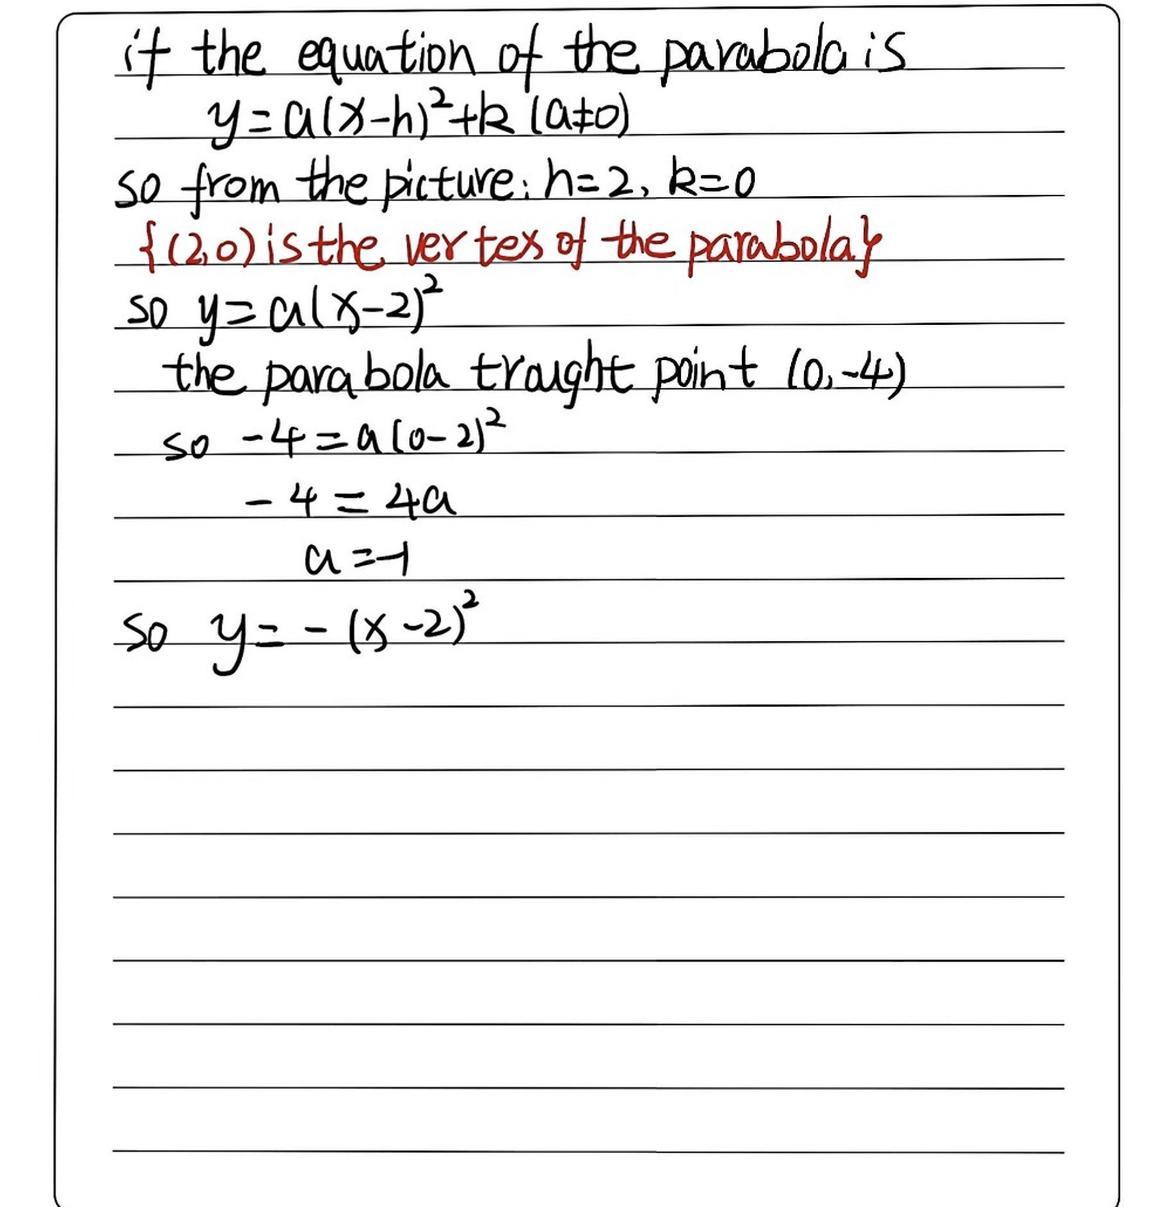 if the equation of the parabola is
y=a(x-h)²+k (a≠0)
so from the picture: h=2, k=0
{(2,0) is the vertex of the parabola}
so y=a(x-2)²
the parabola traught point (0,-4)
so -4=a(0-2)²
-4=4a
a=-1
so y=-(x-2)²